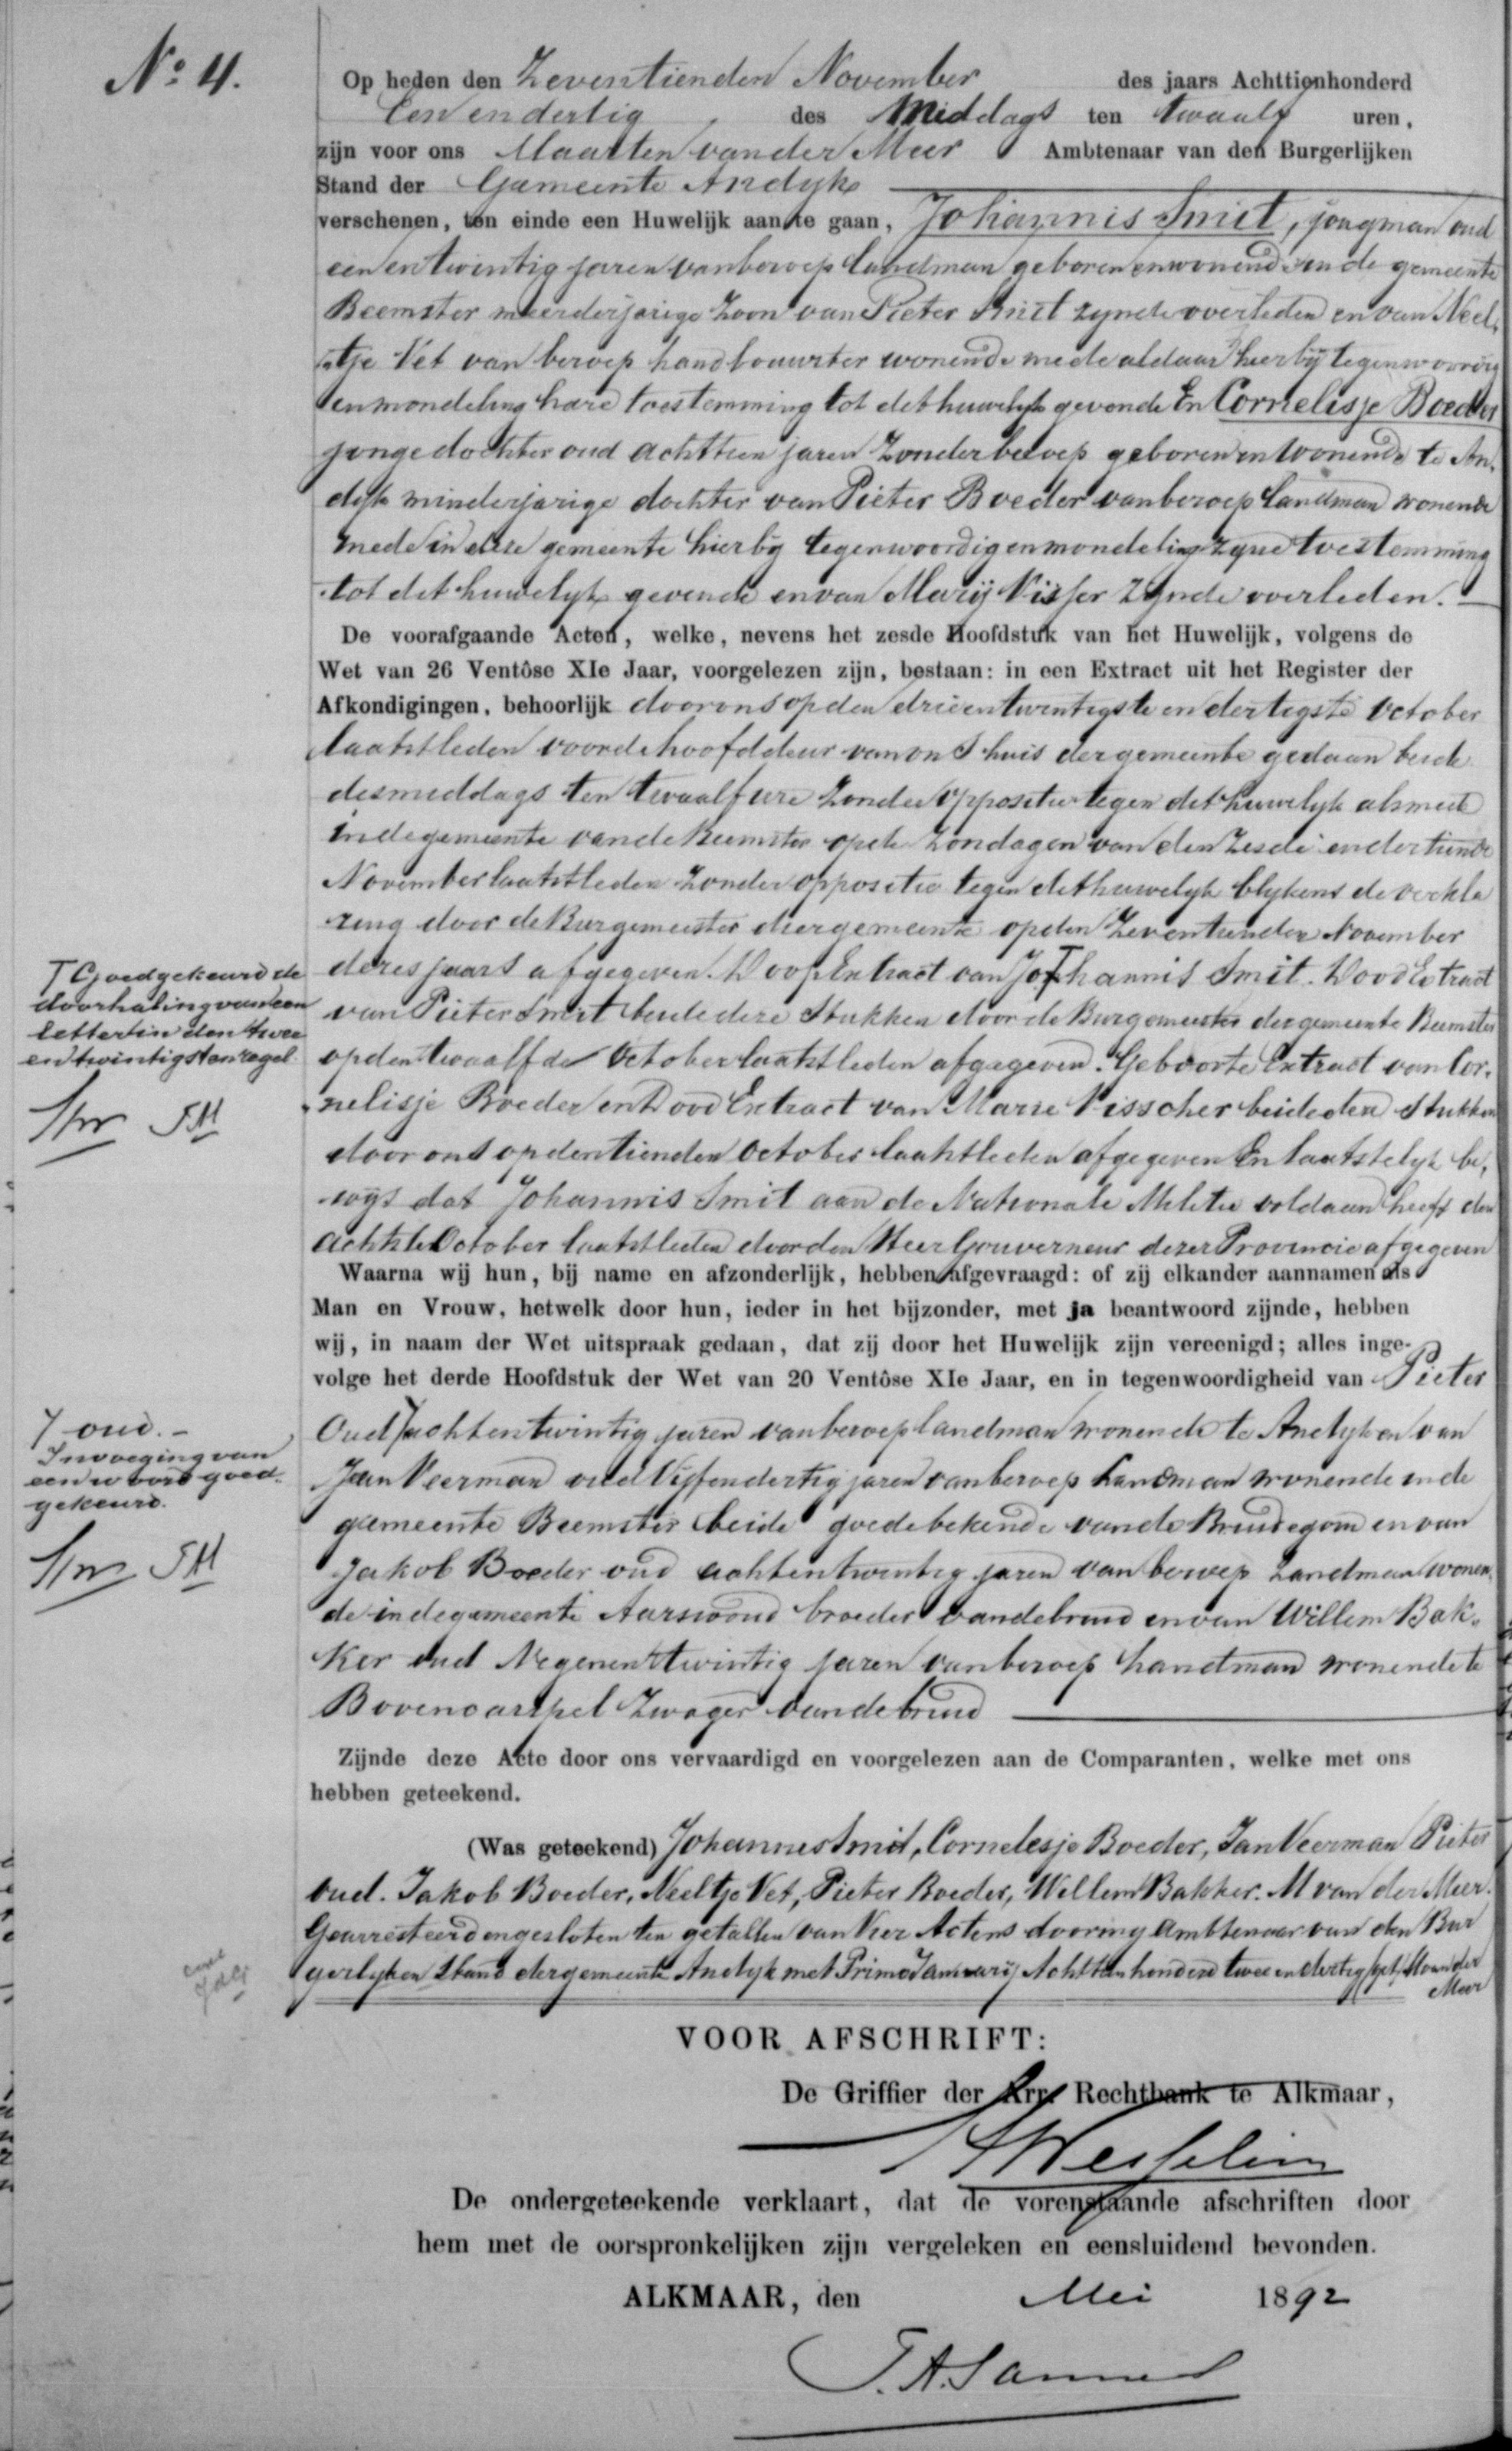 No. 4.
Op heden den Zeventienden November des jaars Achttienhonderd
Een en dertig des Middags ten twaalf uren,
zijn voor ons Maarten van der Meer Ambtenaar van den Burgerlijken
Stand der Gemeente Andijk
verschenen, ten einde een Huwelijk aan te gaan, Johannis Smit, jongman oud
een en twintig jaren van beroep landman geboren en wonend in de gemeente
Beemster meerderjarige Zoon van Pieter Smit zynde overleden en van Neel-
tje Vet van beroep handbouwster wonende mede aldaar hierby tegenwoordig
en mondeling hare toestemming tot dit huwelyk gevende En Cornelisje Boeder
jonge dochter oud achttien jaren Zonder beroep geboren en wonende te An-
dyk minderjarige dochter van Pieter Boeder van beroep landman wonende
mede in deze gemeente hierby tegenwoordig en mondeling zyne toestemming
tot dit huwelyk gevende en van Marij Visser zynde overleden.
De voorafgaande Acten, welke, nevens het zesde Hoofdstuk van het Huwelijk, volgens de
Wet van 26 Ventôse XIe Jaar, voorgelezen zijn, bestaan: in een Extract uit het Register der
Afkondigingen, behoorlijk door ons op den drieentwintigste en dertigste October
laatstleden voor de hoofddeur van ons huis der gemeente gedaan beide
des middags ten twaalf ure zonder oppositie tegen dit huwelyk alsmede
in de gemeente van de Beemster op de Zondagen van den Zesde en dertiende
November laatstleden zonder oppositie tegen dit huwelyk blykens de verkla
ring door de Burgemeester dier gemeente op den Zeventienden November
dezes jaars afgegeven. Doop Extract van Johannis Smit. Dood Extract
van Pieter Smit beide deze Stukken door de Burgemeester der gemeente Beemster
op den twaalfde October laatstleden afgegeven. Geboorte Extract van Cor-
nelisje Boeder en Dood Extract van Marie Visscher beide deze Stukken
door ons op den tienden October laatstleden afgegeven En laatstelyk be-
wys dat Johannis Smit aan de Nationale Militie voldaan heeft den
achtste October laatstleden door den Heer Gouverneur dezer Provincie afgegeven
Waarna wij hun, bij name en afzonderlijk, hebben afgevraagd: of zij elkander aannamen als
Man en Vrouw, hetwelk door hun, ieder in het bijzonder, met ja beantwoord zijnde, hebben
wij, in naam der Wet uitspraak gedaan, dat zij door het Huwelijk zijn vereenigd; alles inge-
volge het derde Hoofdstuk der Wet van 20 Ventôse XIe Jaar, en in tegenwoordigheid van Pieter
Oud achtentwintig jaren van beroep landman wonende te Andyk en van
Jan Veerman oud Vijfendertig jaren van beroep Landman wonende in de
gemeente Beemster beide goede bekende van de Bruidegom en van
Jakob Boeder oud achtentwintig jaren van beroep Landman wonen-
de in de gemeente Aarswoud broeder van de bruid en van Willem Bak-
ker oud Negenentwintig jaren van beroep handman wonende te
Bovencarspel Zwager van de bruid
Zijnde deze Acte door ons vervaardigd en voorgelezen aan de Comparanten, welke met ons
hebben geteekend.
(Was geteekend) Johannes Smit, Cornelesje Boeder, Jan Veerman Pieter
Oud. Jakob Boeder, Neeltje Vet, Pieter Boeder, Willem Bakker. M van der Meer.
Gearresteerd en gesloten ten getallen van Vier Actens door my Ambtenaar van den Bur
gerlyken Stand der gemeente Andyk met Primo January Achttienhonderd twee en dertig (get) M van der
Meer
T Goedgekeurd de
doorhaling van een
letter in den twee
en twintigsten regel.
oud. -
Invoeging van
een woord goed-
gekeurd.
VOOR AFSCHRIFT:
De Griffier der Arr. Rechtbank te Alkmaar,
De ondergeteekende verklaart, dat de vorenstaande afschriften door
hem met de oorspronkelijken zijn vergeleken en eensluidend bevonden.
ALKMAAR, den Mei 1892